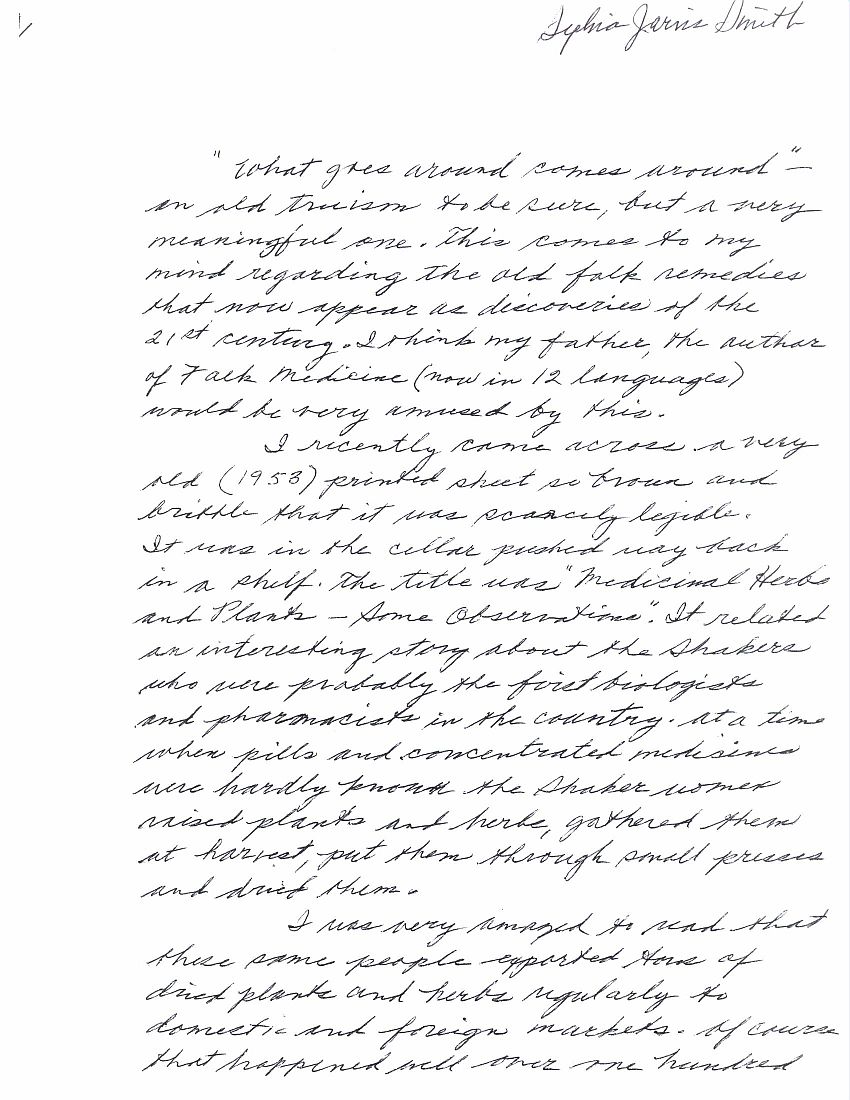 1/
Sylvia Jarvis Smith
"What goes around comes around" —
an old truism to be sure, but a very
meaningful one. This comes to my
mind regarding the old folk remedies
that now appear as discoveries of the
21st century. I think my father, the author
of Folk Medicine (now in 12 languages)
would be very amused by this.
I recently came across a very
old (1953) printed sheet so brown and
brittle that it was scarcely legible.
It was in the cellar pushed way back
in a shelf. The title was "Medicinal Herbs
and Plants — Some Observations". It related
an interesting story about the Shakers
who were probably the first biologists
and pharmacists in the country. At a time
when pills and concentrated medicines
were hardly known the Shaker women
raised plants and herbs, gathered them
at harvest, put them through small presses
and dried them.
I was very amazed to read that
these same people exported tons of
dried plants and herbs regularly to
domestic and foreign markets. Of course
that happened well over one hundred